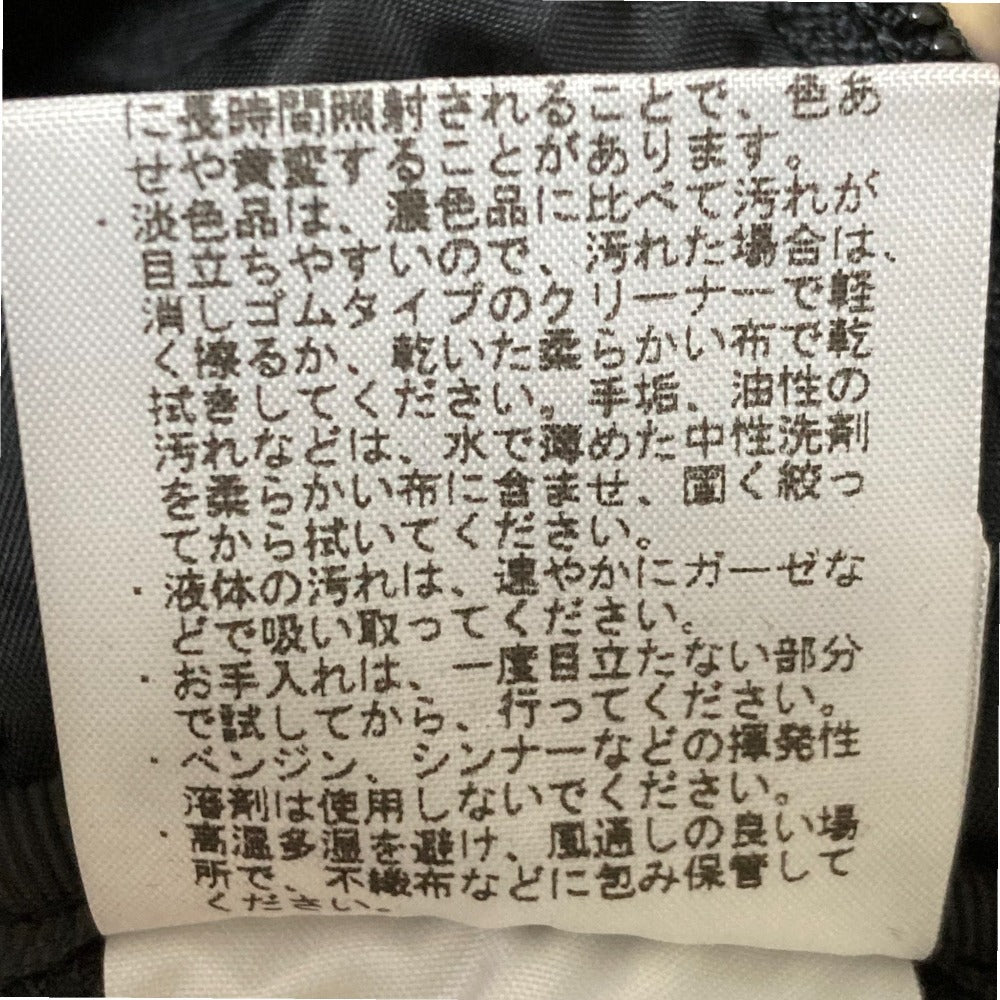 に長時間照射されることで、色あ
せや黄変することがあります。
・淡色品は、濃色品に比べて汚れが
目立ちやすいので、汚れた場合は、
消しゴムタイプのクリーナーで軽
く擦るか、乾いた柔らかい布で乾
拭きしてください。手垢、油性の
汚れなどは、水で薄めた中性洗剤
を柔らかい布に含ませ、固く絞っ
てから拭いてください。
・液体の汚れは、速やかにガーゼな
どで吸い取ってください。
・お手入れは、一度目立たない部分
で試してから、行ってください。
・ベンジン、シンナーなどの揮発性
溶剤は使用しないでください。
・高温多湿を避け、風通しの良い場
所で、不織布などに包み保管して
ください。